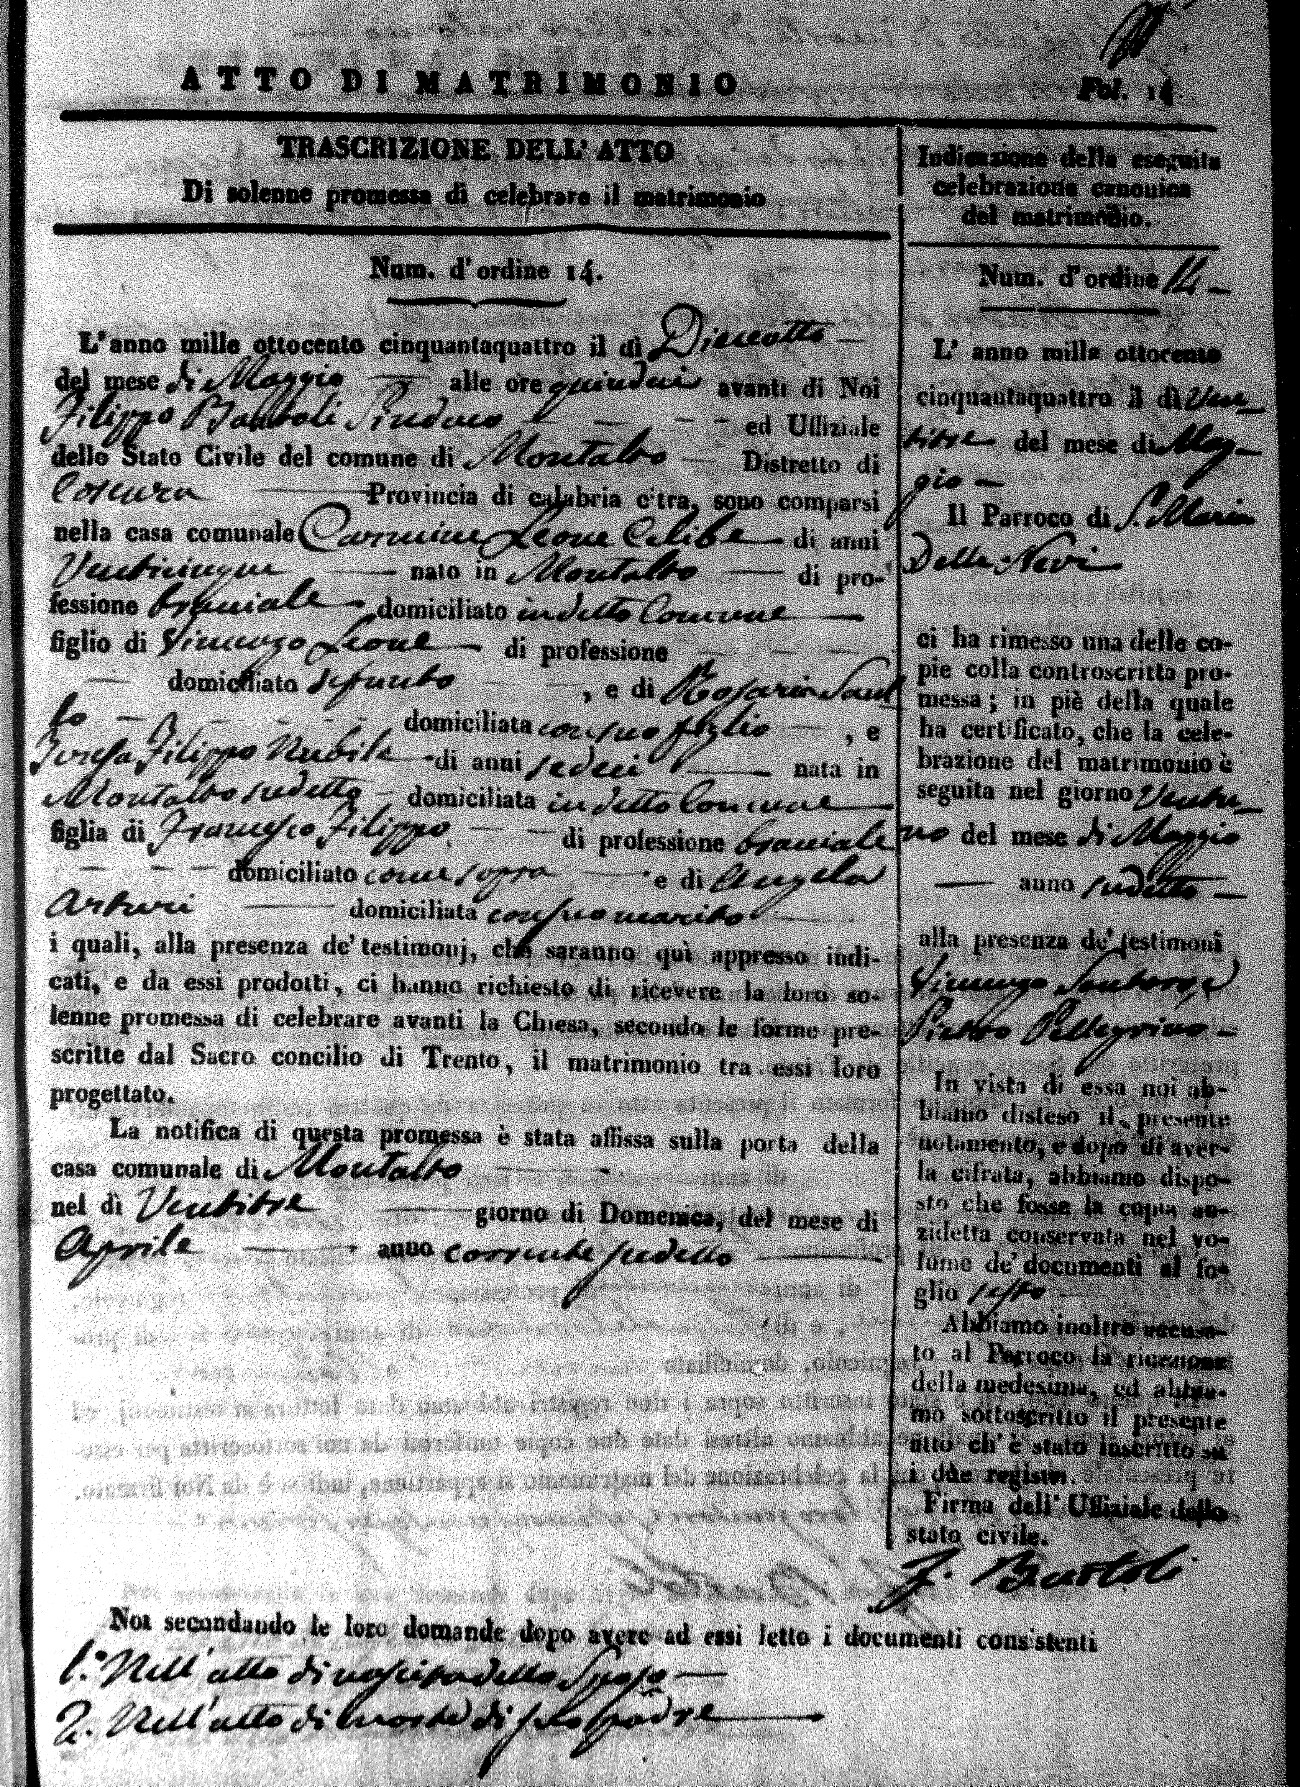 ATTO DI MATRIMONIO
Fol. 14
TRASCRIZIONE DELL' ATTO
Di solenne promessa di celebrare il matrimonio
Num. d'ordine 14.
L'anno mille ottocento cinquantaquattro il dì Dieciotto
del mese di Maggio alle ore quindici avanti di Noi
Filippo Bartoli Sindaco ed Uffiziale
dello Stato Civile del comune di Montalto Distretto di
Cosenza Provincia di calabria citra, sono comparsi
nella casa comunale Carmine Leone Celibe di anni
Venticinque nato in Montalto di pro-
fessione bracciale domiciliato in detto Comune
figlio di Vincenzo Leone di professione
domiciliato defunto , e di Rosaria Sant
lo domiciliata con suo figlio , e
Teresa Filippo Nubile di anni sedeci nata in
Montalto sudetto domiciliata in detto Comune
figlia di Francesco Filippo di professione bracciale
domiciliato come sopra e di Angela
Arturi domiciliata con suo marito
i quali, alla presenza de' testimonj, che saranno quì appresso indi-
cati, e da essi prodotti, ci hanno richiesto di ricevere la loro so-
lenne promessa di celebrare avanti la Chiesa, secondo le forme pre-
scritte dal Sacro concilio di Trento, il matrimonio tra essi loro
progettato.
La notifica di questa promessa è stata affissa sulla porta della
casa comunale di Montalto
nel dì Ventitre giorno di Domenica, del mese di
Aprile anno corrente sudetto
Indicazione della eseguita
celebrazione canonica
del matrimonio.
Num. d'ordine 14
L' anno mille ottocento
cinquantaquattro il dì Ven
titre del mese di Mag
gio
Il Parroco di S. Maria
Delle Nevi
ci ha rimesso una delle co-
pie colla controscritta pro-
messa; in piè della quale
ha certificato, che la cele-
brazione del matrimonio è
seguita nel giorno Ventu
no del mese di Maggio
anno sudetto
alla presenza de' testimoni
Vincenzo
Pietro Pellegrino
In vista di essa noi ab-
biamo disteso il presente
notamento, e dopo di aver-
la cifrata, abbiamo dispo-
sto che fosse la copia an-
zidetta conservata nel vo-
lume de' documenti al fo-
glio sesto
Abbiamo inoltre accusa-
to al Parroco la ricezione
della medesima, ed abbia-
mo sottoscritto il presente
atto ch' è stato inscritto su
i due registri.
Firma dell' Uffiziale dello
stato civile.
F. Bartoli
Noi secondando le loro domande dopo avere ad essi letto i documenti consistenti
1.° Nell'atto di nascita dello Sposo
2. Nell'atto di morte di suo padre